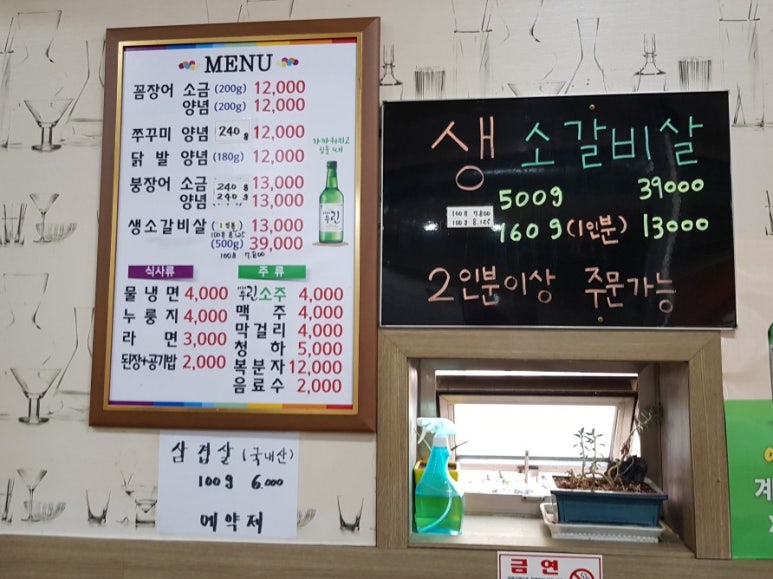 MENU
꼼장어 소금 (200g) 12,000
양념 (200g) 12,000
쭈꾸미 양념 240g 12,000
닭 발 양념 (180g) 12,000
붕장어 소금 240g 13,000
양념 240g 13,000
생소갈비살 (1인분) 13,000
100g 8.125
(500g) 39,000
100g 7.800
식사류
물냉면 4,000
누룽지 4,000
라면 3,000
된장+공기밥 2,000
주류
소주 4,000
맥주 4,000
막걸리 4,000
청하 5,000
복분자 12,000
음료수 2,000
삼겹살 (국내산)
100g 6.000
예약제
생 소갈비살
500g 39000
100g 7.800
100g 8.125
160g (1인분) 13000
2인분이상 주문가능
금연
계